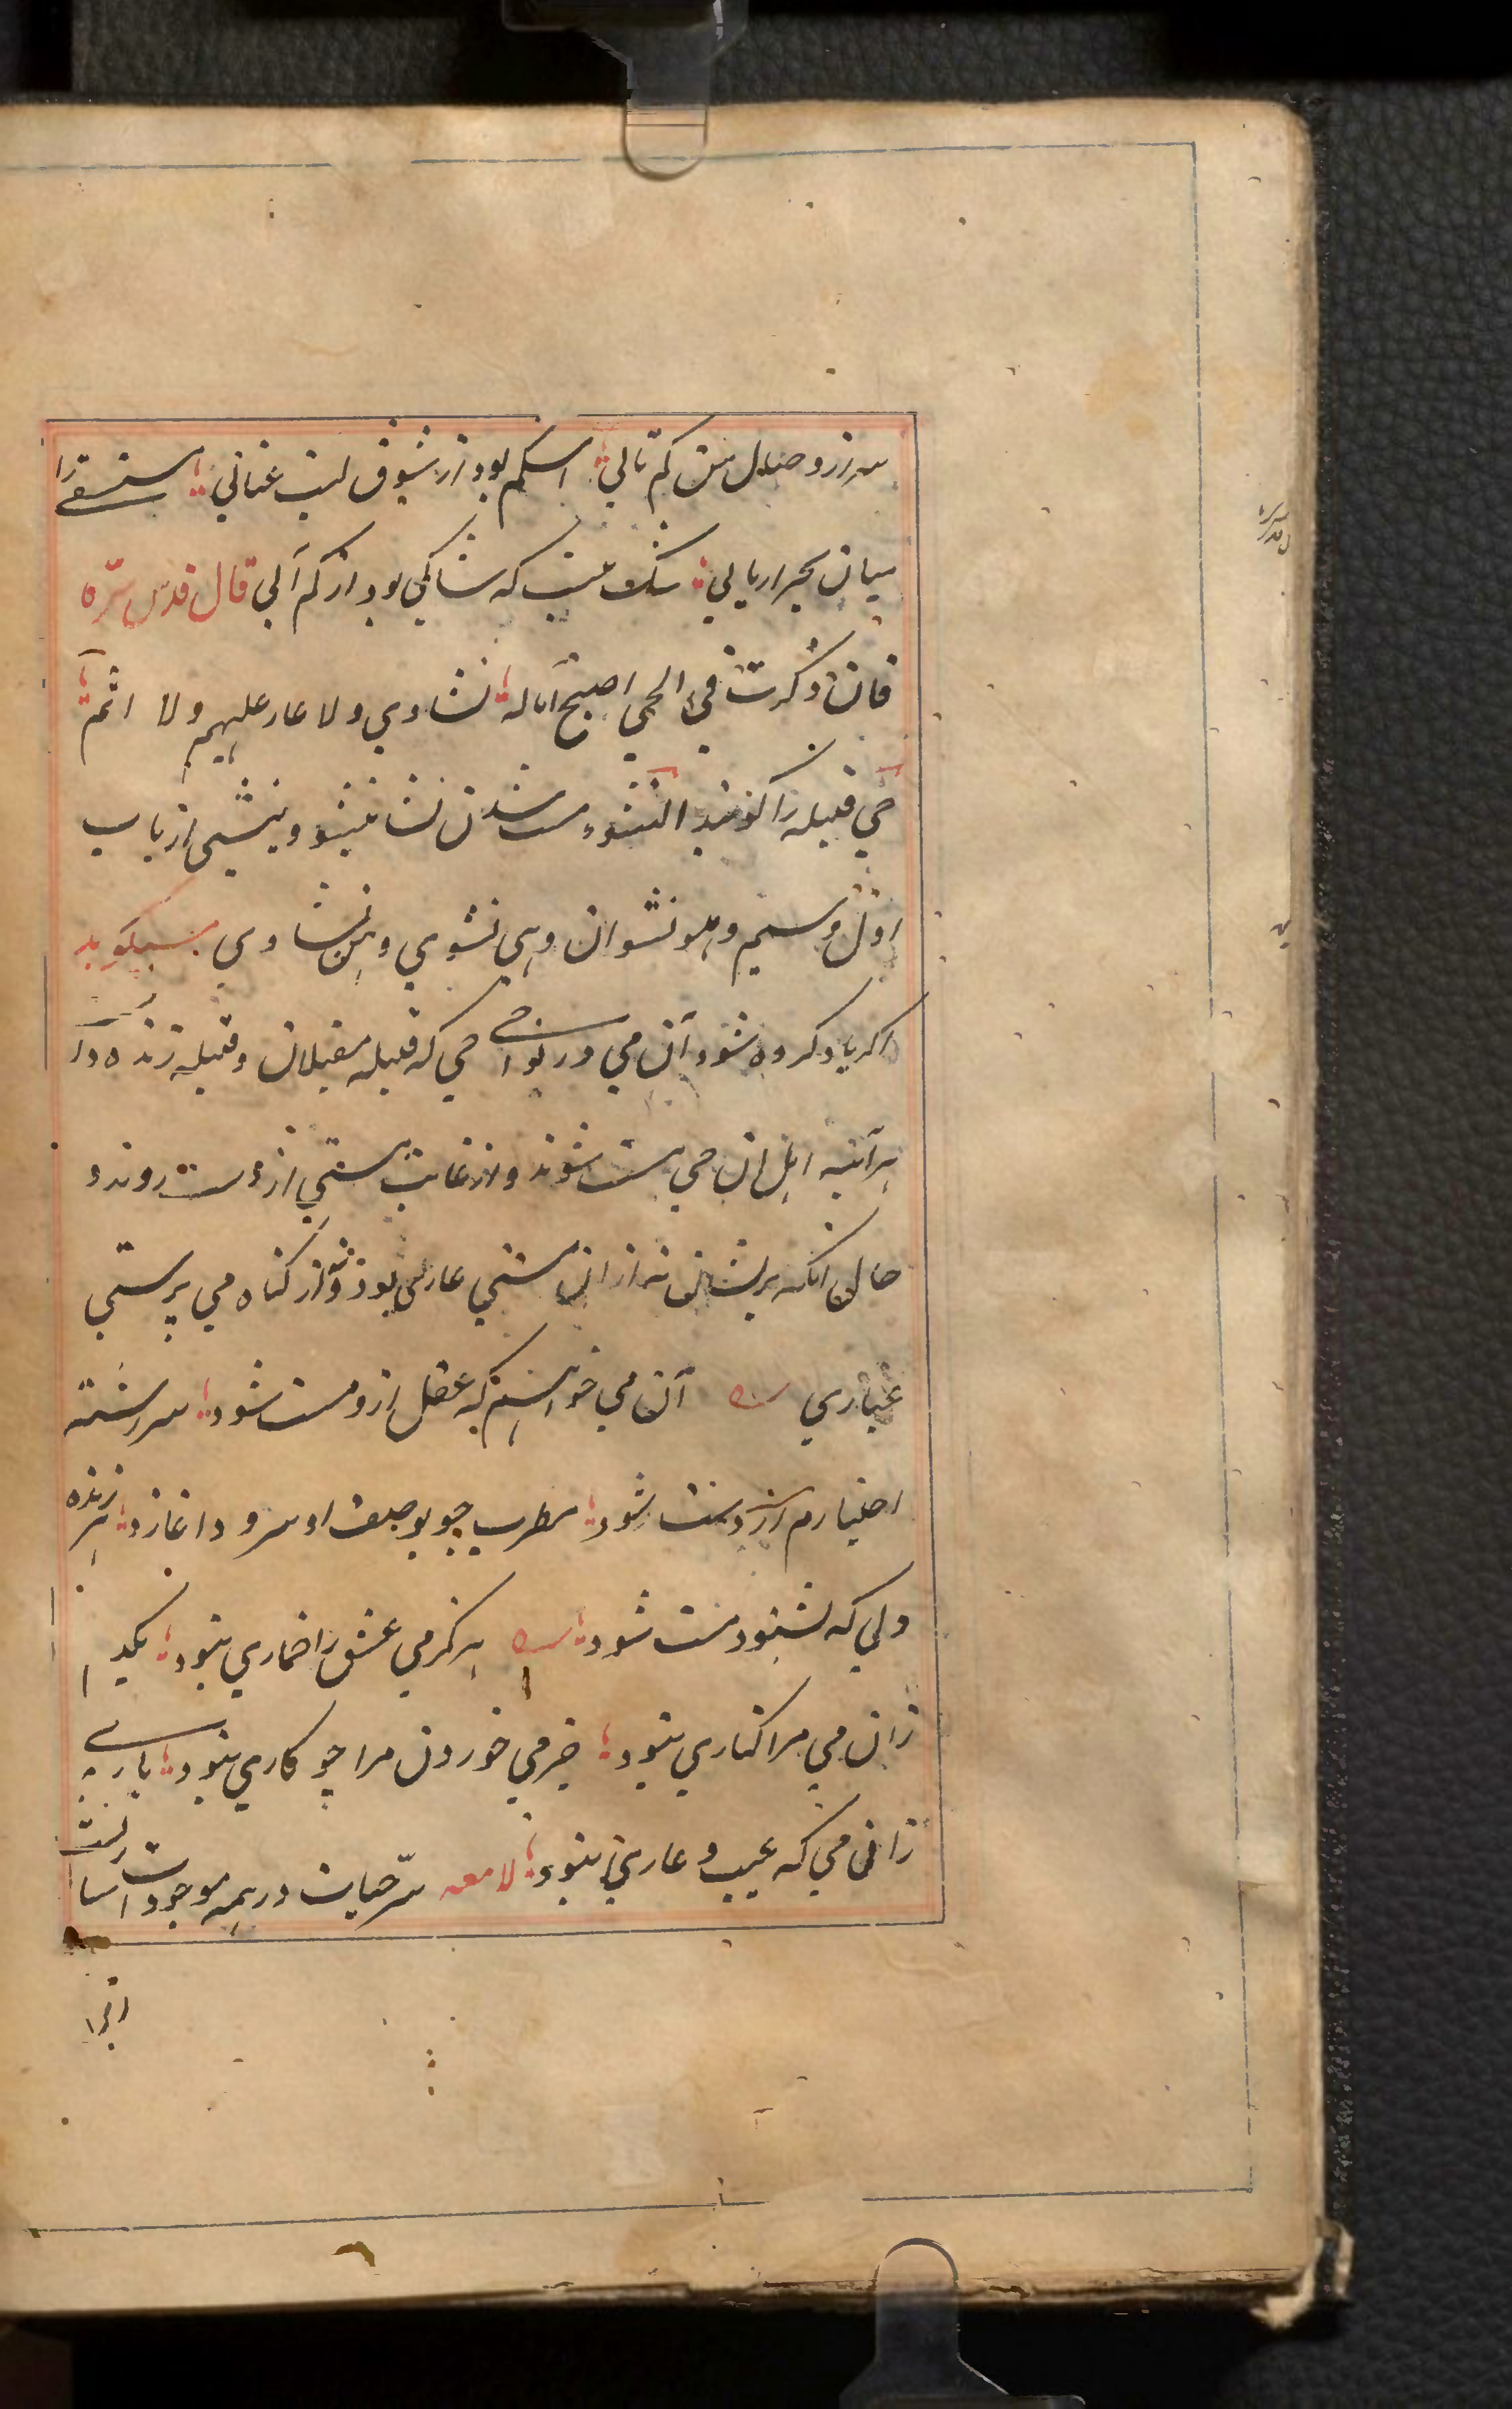 سر زد و صدل من کم تالی؛ اسکم بود از شوق لبت عنابی؛ مستسقی را
میان بحر اریابی؛ شک نیست که شاکی بود از کم آبی قال قدس سره
فان ذکرت فی الحی اصبح اهله؛ نشاوی ولا عار علیهم ولا اثم؛
حی قبیله را کویند النشوء مست شدن نشا ینشو و ینشی از باب
اول و سیم وهو نشوان وهی نشوی وهن نشاوی میکوید
اکر یاد کرده شود آن می در نواحی حی که قبیله مقبلان و قبیله زنده دلا
هرآینه اهل ان حی مست شوند و از غایت مستی از دست روند و
حال انکه بریشان نه از ان مستی عاری بود و نه از کناه می پرستی
غباری آن می خواهم که عقل ازو مست شود؛ سررشته
اختیارم از دست شود؛ مطرب چو بوصف او سرود اغازد؛ هر زنده
دلی که بشنود مست شود؛ هرکز می عشق را خماری نبود؛ یکدم
زان می مرا کناری نبود؛ جز می خوردن مرا چو کاری نبود؛ باری
زانی می که عیب و عاری نبود؛ لامعه سر حیات در همه موجودات
انرا